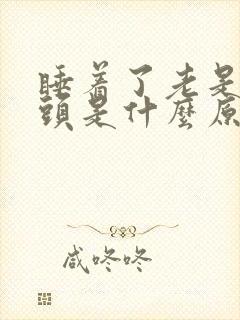 睡着了老是
頭是什麼原
咸咚咚